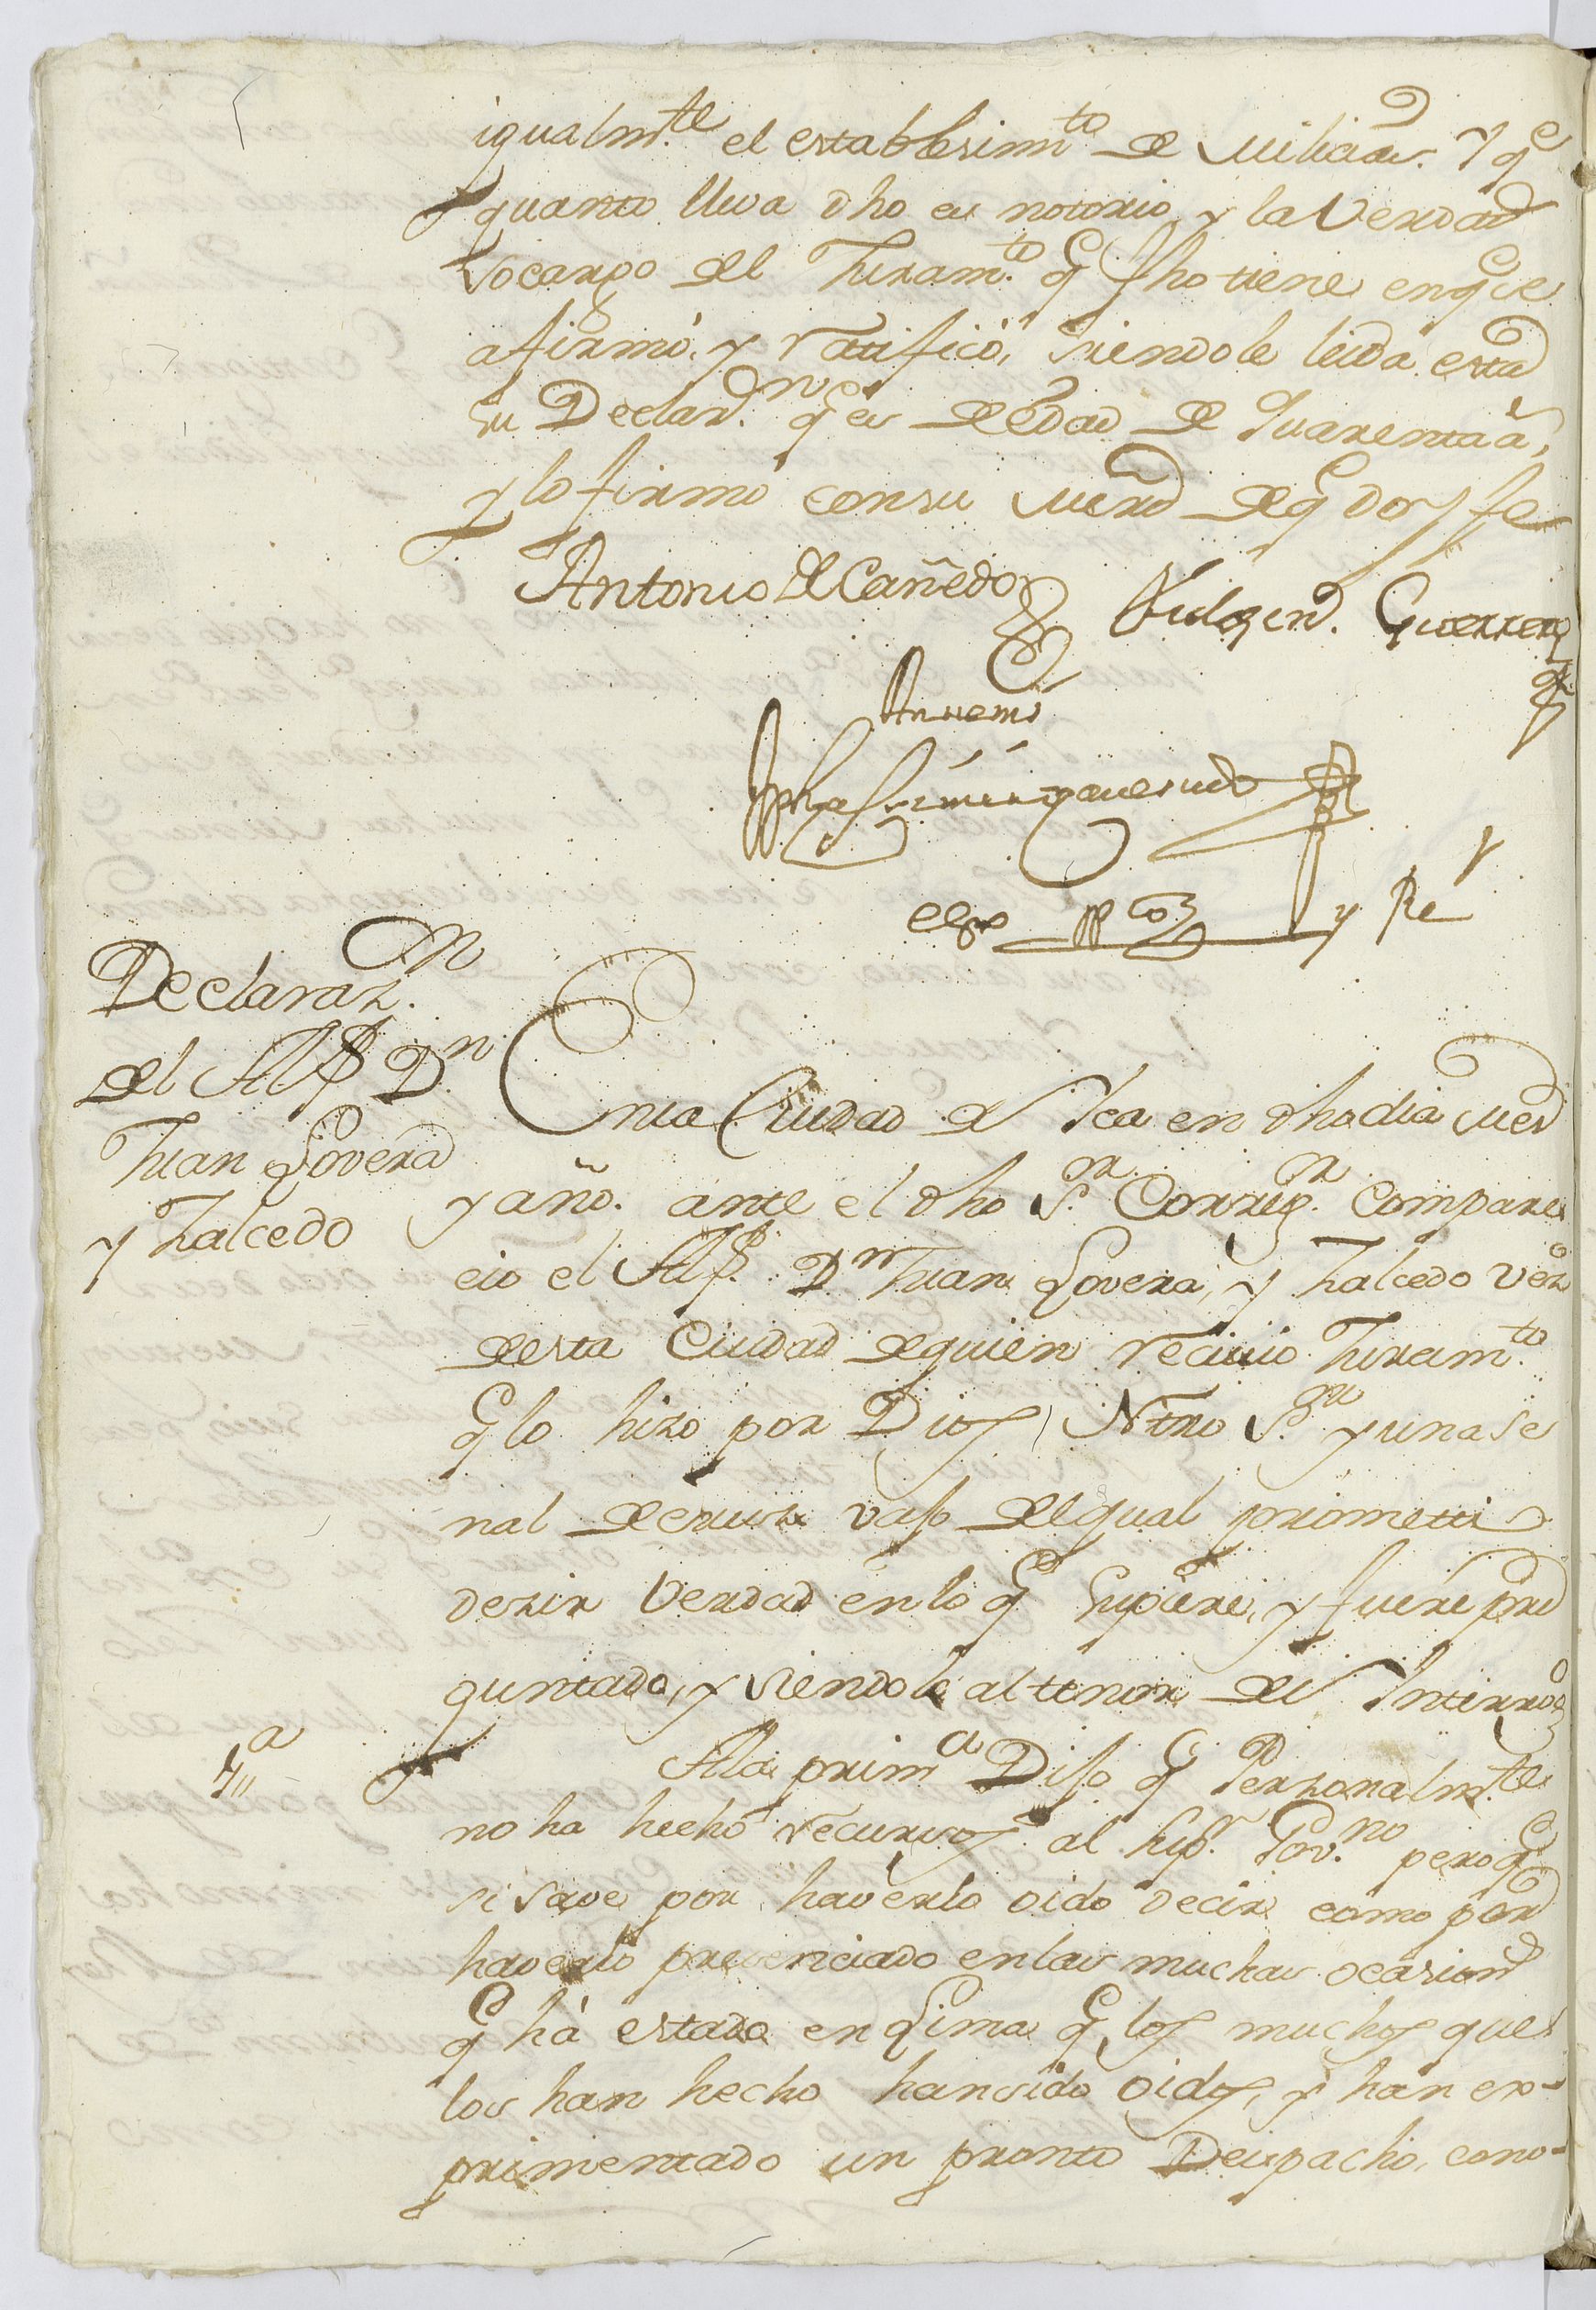 igualm.te el establesim.to de Milicias. Y q.e
quanto lleva dho es notorio, y la Verdad
socargo del Juram.to q.e fho tiene enq.e se
afirmó, y ratificó, siendole leida esta
su Declar.on q.e es de edad de Quarenta a.s
y lo firmó con su mrd de q.e doy fe
Antonio de Cañedo
Fulgen.o Guerrero
Antemi
ess.no pp.co y Re
Declaraz.on
del Alf.z D.n
Juan Lovera
y Zalcedo
En la Ciudad de Ica en dho dia mes
y año. ante el dho S.or Correg.or compare
cio el Alf.z D.n Juan Lovera, y Zalcedo vez.o
de esta Ciudad de quien recivio Juram.to
q.e lo hizo por Dios Ntro S.or y una se
ñal de cruz vajo del qual prometió
dezir Verdad en lo q.e supiere, y fuere pre
guntado, y siendole al tenor del Interrog.o
1.a
A la prim.a Dijo q.e Perzonalm.te
no ha hecho recursos al Sup.r Gov.no pero q.e
si save por haverlo oido decir como por
haverlo presenciado en las muchas ocasion.s
q.e há estado en Lima q.e los muchos que
los han hecho han sido oidos, y han ex-
primentado un pronto Despacho, cono-